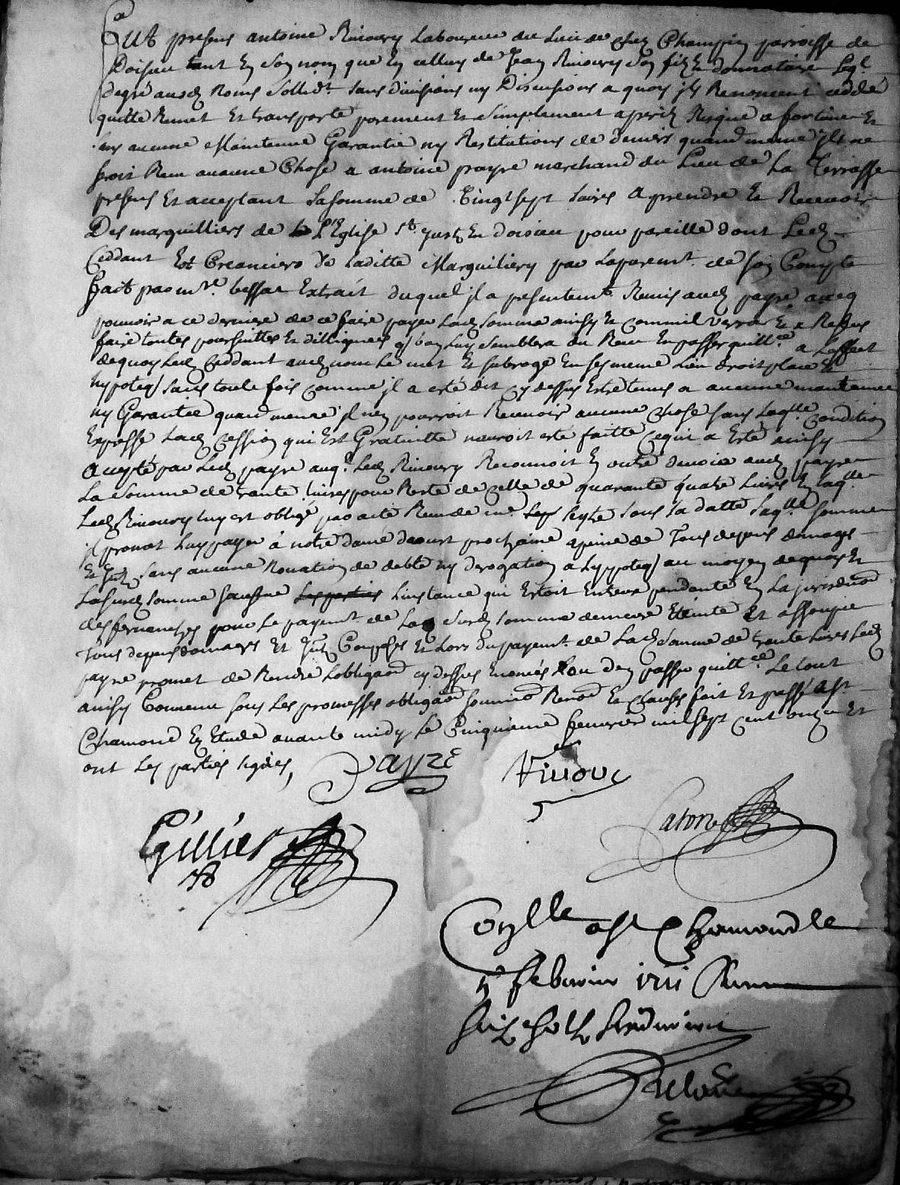 Fut presens antoine Rivoury Laboureur du Lieu de chez Champin parroisse de
Doisieu tant En son nom que En celluy de Jean Rivoury son filz donnataire
degré ausd noms sollidt sans divisions ny Discussions a quoy ils Renoncent cedde
quitte Remet Et transporte purement Et simplement a peril Risque a fortune Et
sans aucune Maintenue Garantie ny Restitutions de deniers quand meme il ne
seroit Rien aucune Chose a antoine payre marchand du Lieu de La Terrasse
presens Et acceptant La somme de Vingt sept livres a prendre Et Recevoir
Des marguilliers de L'Eglise st just En doisieu pour pareille dont Led
Ceddant Est Creancier de Laditte Marguilliery par Larrest de son Compte
fait par mr bessat Extrait duquel il a presentemt Remis aud payre avec
pouvoir a ce dernier de ce faire payer Lad somme ainsy Et comme il verra Et a Reffus
faire touttes poursuittes Et dilligences q bon Luy semblera du Receu En passer quittce a Leffait
dequoy Led Ceddant aud nom Le met Et subroge En ses meme Lieu droit place Et
hypoteq sans toute fois comme il a esté dit cy dessus Estre tenus a aucune maintenue
ny Garantie quand meme il n'en pourroit Recevoir aucune chose sans Laqlle Condition
Expresse Lad Cession qui Est Gratuitte n'auroit esté faitte ce qui a Esté ainsy
accepté par Led payre auql Led Rivoury Reconnoit En outre devoir aud payre
La somme de trante livres pour Reste de celle de quarante quatre Livres En laqlle
Led Rivoury luy est obligé par acte Receu de me sous sa datte Laqlle somme
il promet Luy payer à notre dame daoust prochaine a peine de Tous depens domages
Et Intz sans aucune novation de debte ny derogation à Lyppoteq au moyen dequoy Et
Lasusd somme L'instance qui Estoit Encore pendente En La jurisdon
des fernanches pour Le payemt de La susd somme demeure Eteinte Et assoupie
Tous depens domages Et Intz Compris Et Lors du payemt de Lad somme de trante Livres Led
payre promet de Rendre Lobligaon cy dessus Enoncé ou den passer quittce Le tout
ainsy Convenu sous Les promesses obligaon soumiss Renon Et clauses fait Et passé a st
Chamond En Etude avante midy Le Cinquieme fevrier mil sept cent onze Et
ont Les parties signés,
Payre Rivoury
Gillier Catore
Conlle a st Chamond le
5e febvrier 1711 Receu